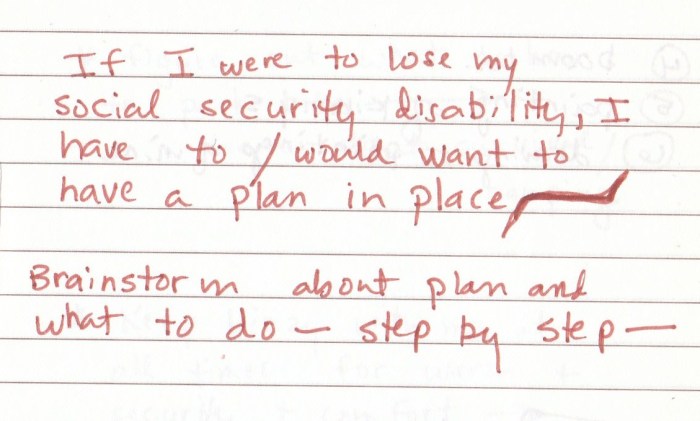 If I were to lose my
social security disability, I
have to / would want to
have a plan in place
Brainstorm about plan and
what to do — step by step —